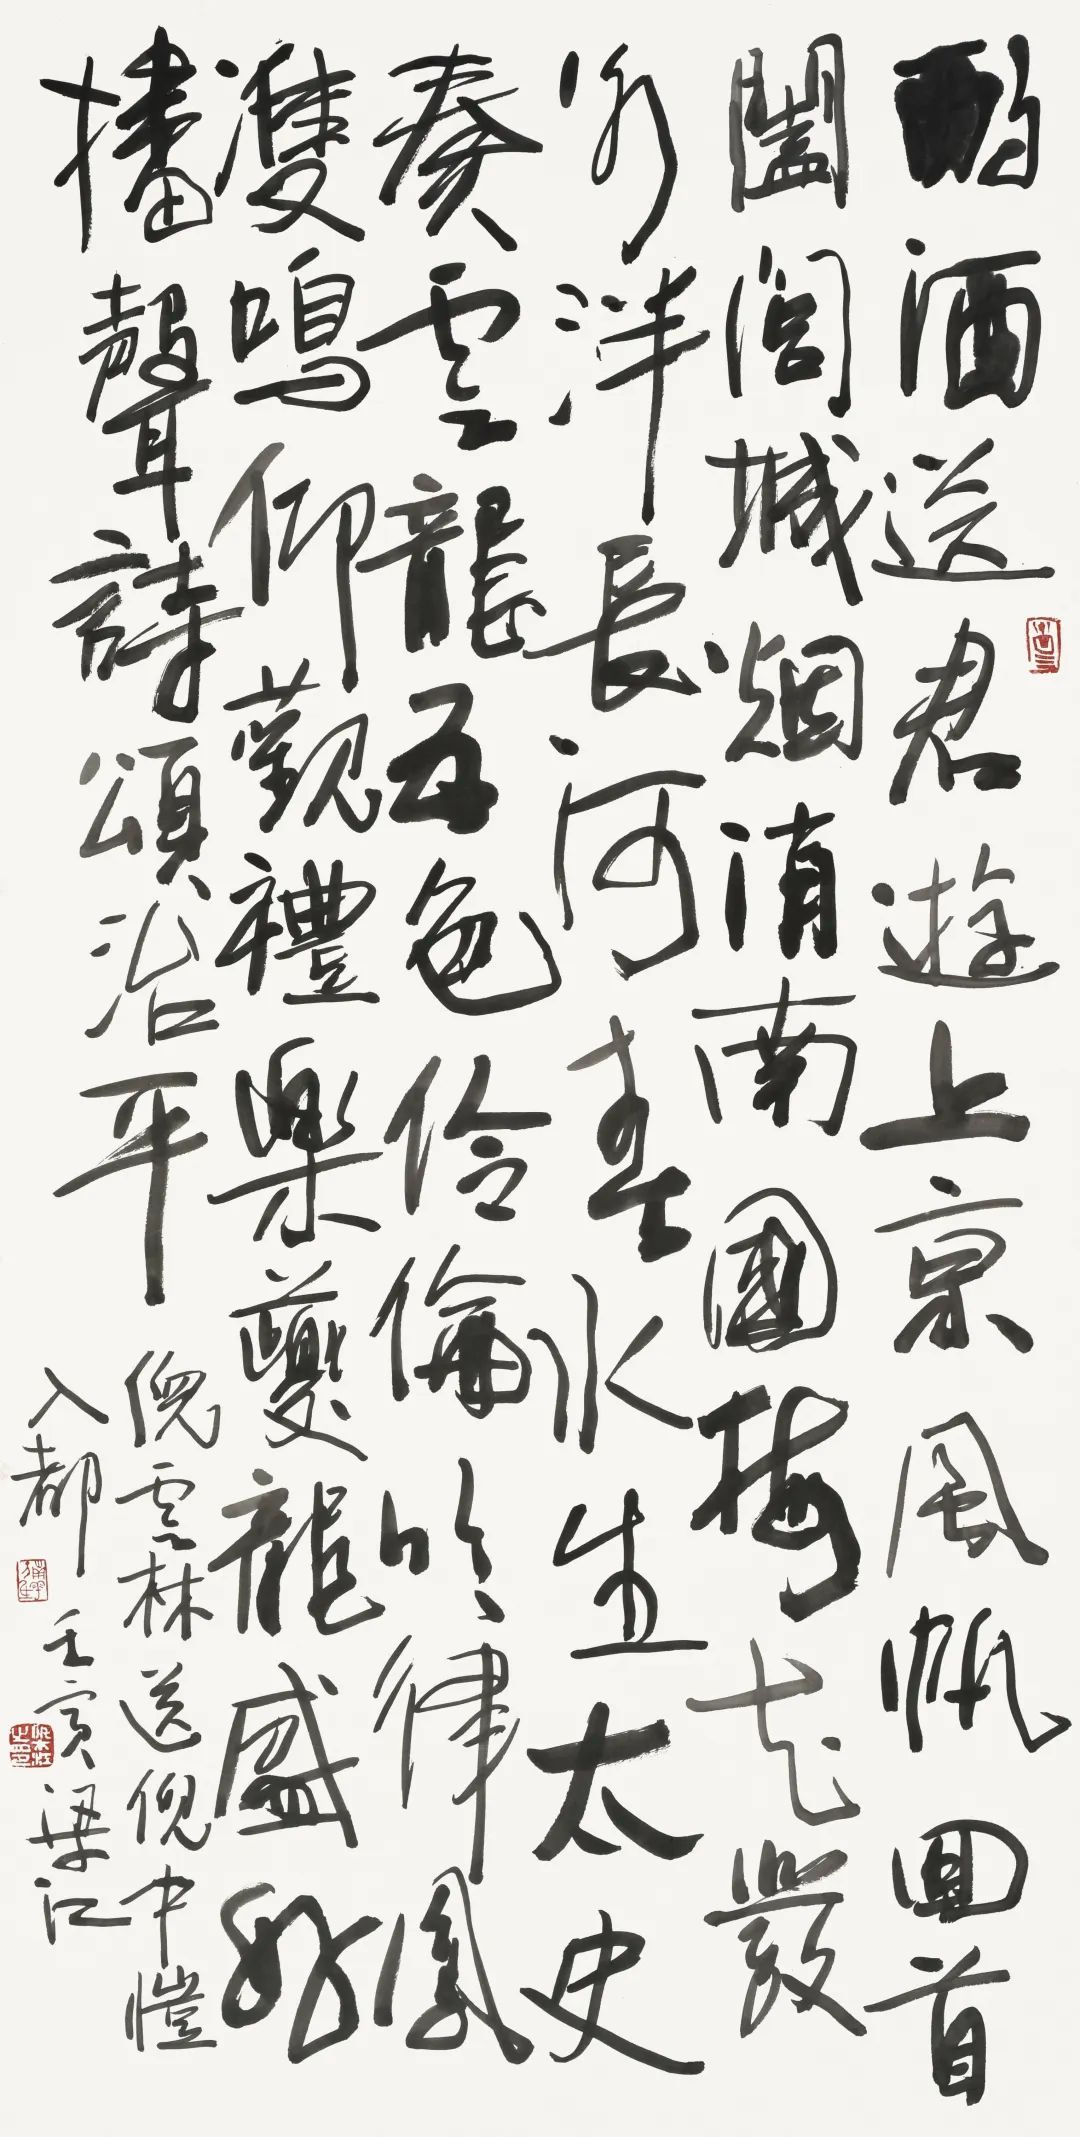 酌酒送君遊上京風帆回首
闔閭城烟消南國梅花發
冰泮長河春水生太史
奏雲龍五色伶倫吹律鳳
雙鳴仰觀禮樂夔龍盛能
播聲詩頌治平
倪雲林送倪中愷
入都 壬寅梁江